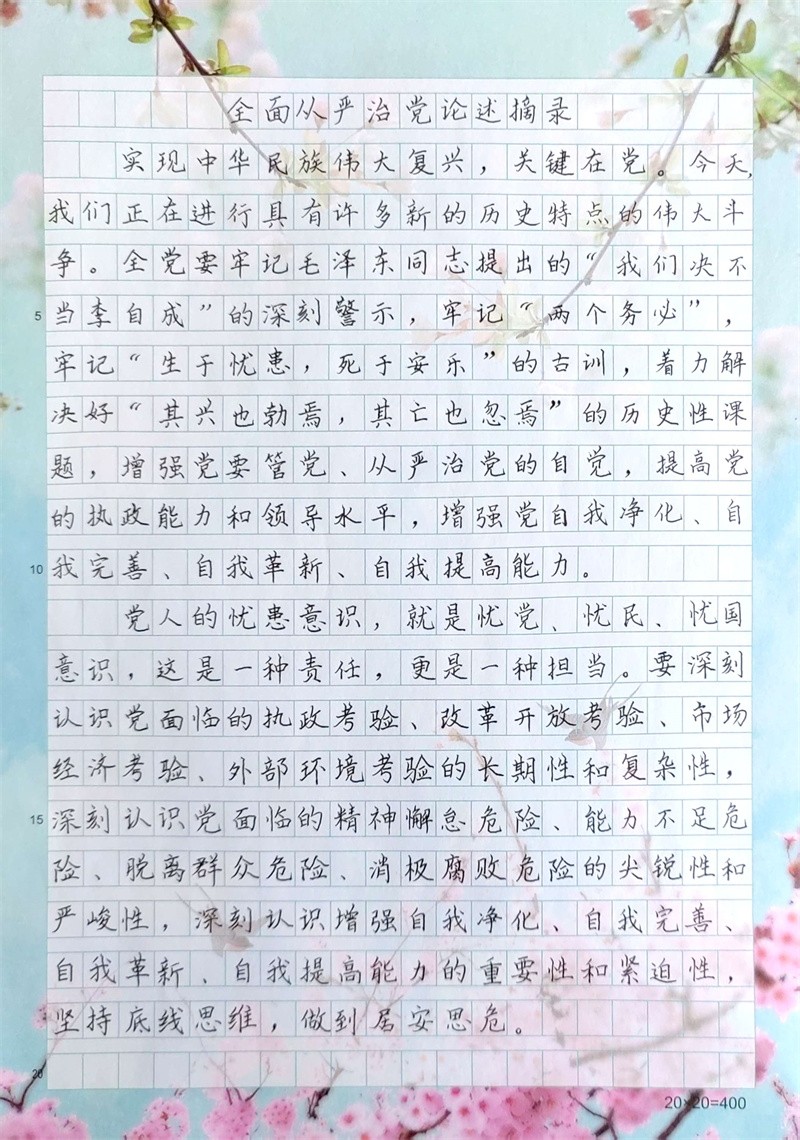 全面从严治党论述摘录
实现中华民族伟大复兴，关键在党。今天，
我们正在进行具有许多新的历史特点的伟大斗
争。全党要牢记毛泽东同志提出的“我们决不
5 当李自成”的深刻警示，牢记“两个务必”，
牢记“生于忧患，死于安乐”的古训，着力解
决好“其兴也勃焉，其亡也忽焉”的历史性课
题，增强党要管党、从严治党的自觉，提高党
的执政能力和领导水平，增强党自我净化、自
10 我完善、自我革新、自我提高能力。
党人的忧患意识，就是忧党、忧民、忧国
意识，这是一种责任，更是一种担当。要深刻
认识党面临的执政考验、改革开放考验、市场
经济考验、外部环境考验的长期性和复杂性，
15 深刻认识党面临的精神懈怠危险、能力不足危
险、脱离群众危险、消极腐败危险的尖锐性和
严峻性，深刻认识增强自我净化、自我完善、
自我革新、自我提高能力的重要性和紧迫性，
坚持底线思维，做到居安思危。
20
20×20=400